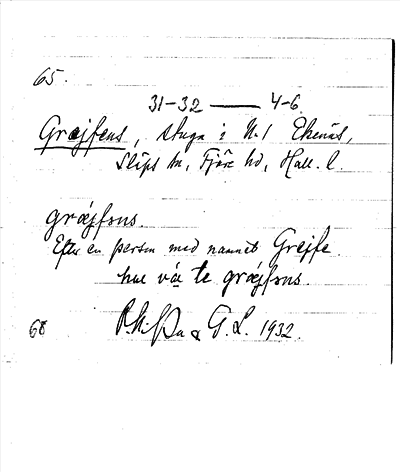 65.
31-32 — 4-6
Græjfens, stuga i N. 1 Ekenäs,
Släps sn, Fjäre hd, Hall. l.
græjfɘns.
Efter en person med namnet Grejfe.
hue vá te græjfɘns.
& G. L. 1932.
68